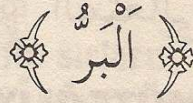 اَلْبَرُّ